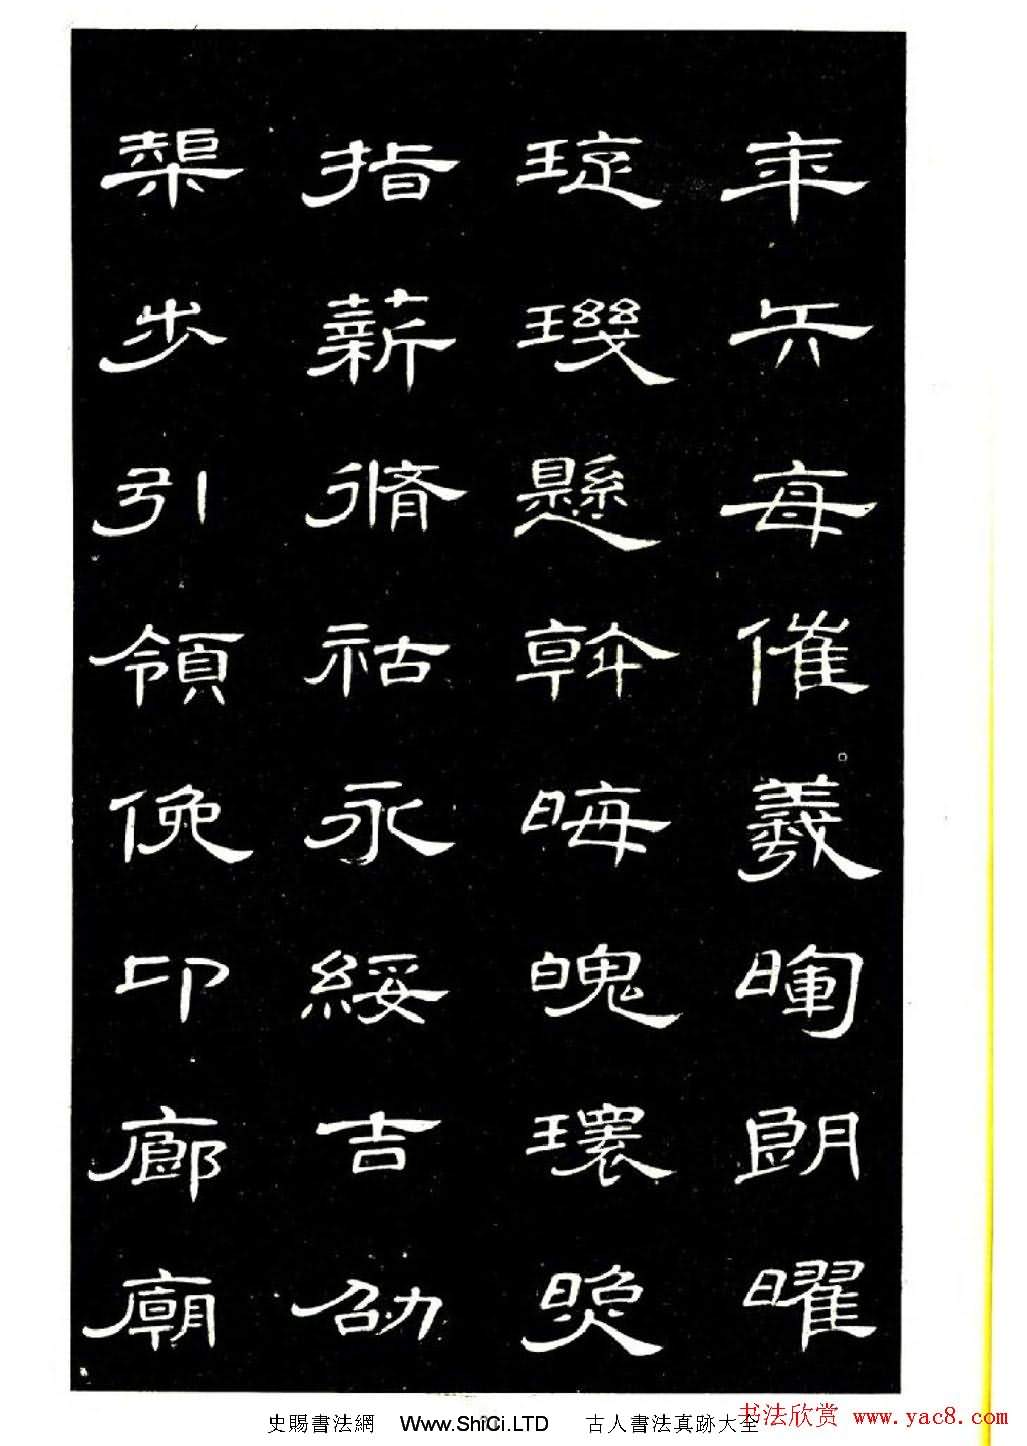 年矢每催羲暉朗曜
琁璣懸斡晦魄環照
指薪脩祜永綏吉劭
榘步引領俛卬廊廟
史賜書法網 Www.ShiCi.LTD 古人書法真跡大全
书法欣赏 www.yac8.com